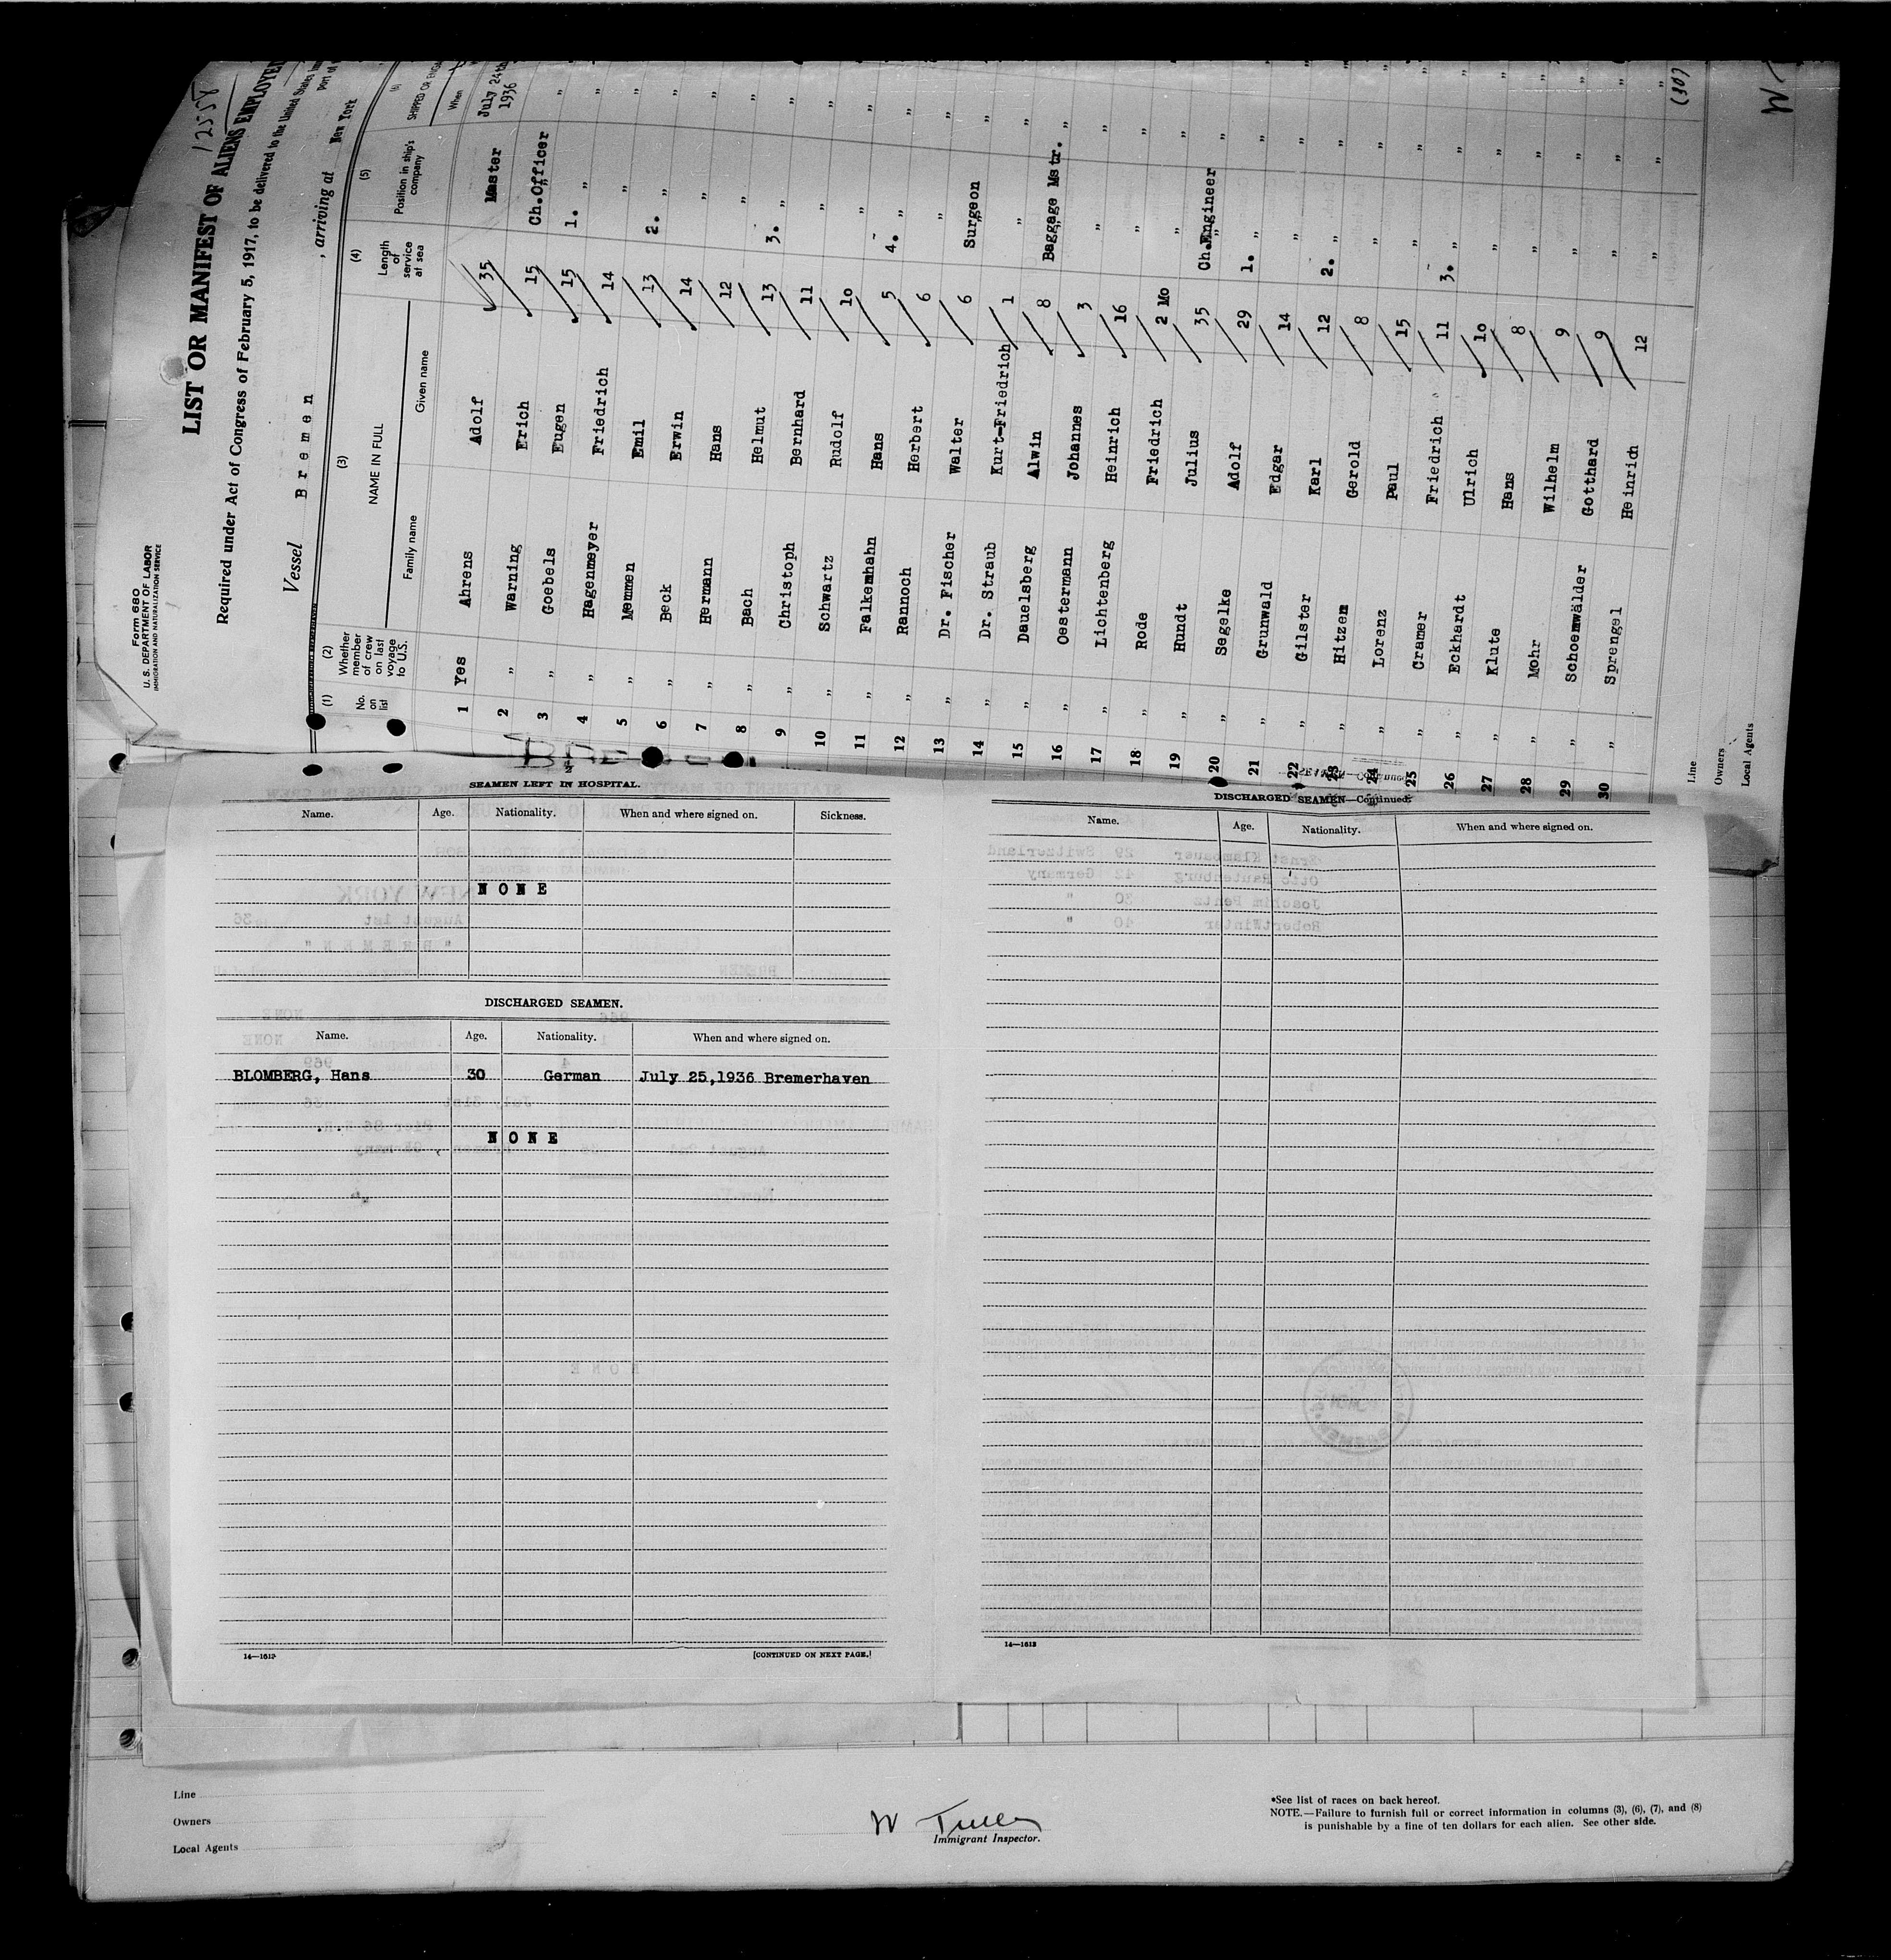 12558
Form 680
U. S. DEPARTMENT OF LABOR
IMMIGRATION AND NATURALIZATION SERVICE
LIST OR MANIFEST OF ALIENS EMPLOYED
Required under Act of Congress of February 5, 1917, to be delivered to the United States
Vessel Bremen , arriving at New York
(1) (2) (3) (4) (5) (6)
No. on list Whether member of crew on last voyage to U.S. NAME IN FULL Length of service at sea Position in ship's company SHIPPED OR
Family name Given name When
1 Yes Ahrens Adolf 35 Master July 24th 1936
2 " Warning Erich 15 Ch.Officer
3 " Goebels Eugen 15 1. " "
4 " Hagenmeyer Friedrich 14 " "
5 " Memmen Emil 13 " "
6 " Beck Erwin 14 2. " "
7 " Hermann Hans 12 " "
8 " Bach Helmut 13 " "
9 " Christoph Bernhard 11 3. " "
10 " Schwartz Rudolf 10 " "
11 " Falkemhahn Hans 5 " "
12 " Rannoch Herbert 6 4. " "
13 " Dr. Fischer Walter 6 " "
14 " Dr. Straub Kurt-Friedrich 1 Surgeon "
15 " Dauelsberg Alwin 8 " "
16 " Oestermann Johannes 3 Baggage Mstr. "
17 " Lichtenberg Heinrich 16 " "
18 " Rode Friedrich 2 Mo " "
19 " Hundt Julius 35 " "
20 " Segelke Adolf 29 Ch.Engineer "
21 " Grunwald Edgar 14 1. " "
22 " Gilster Karl 12 " "
23 " Hitzen Gerold 8 2. " "
24 " Lorenz Paul 15 " "
25 " Cramer Friedrich 11 " "
26 " Eckhardt Ulrich 10 3. " "
27 " Klute Hans 8 " "
28 " Mohr Wilhelm 9 " "
29 " Schoemwälder Gotthard 9 " "
30 " Sprengel Heinrich 12 " "
(30)
Line
Owners
Local Agents
SEAMEN LEFT IN HOSPITAL.
Name. Age. Nationality. When and where signed on. Sickness.
NONE
DISCHARGED SEAMEN.
Name. Age. Nationality. When and where signed on.
BLOMBERG, Hans 30 German July 25,1936 Bremerhaven
NONE
14—1613
[CONTINUED ON NEXT PAGE.]
DISCHARGED SEAMEN—Continued.
Name. Age. Nationality. When and where signed on.
14—1613
Line
Owners
Local Agents
Immigrant Inspector.
*See list of races on back hereof.
NOTE.—Failure to furnish full or correct information in columns (3), (6), (7), and (8)
is punishable by a fine of ten dollars for each alien. See other side.